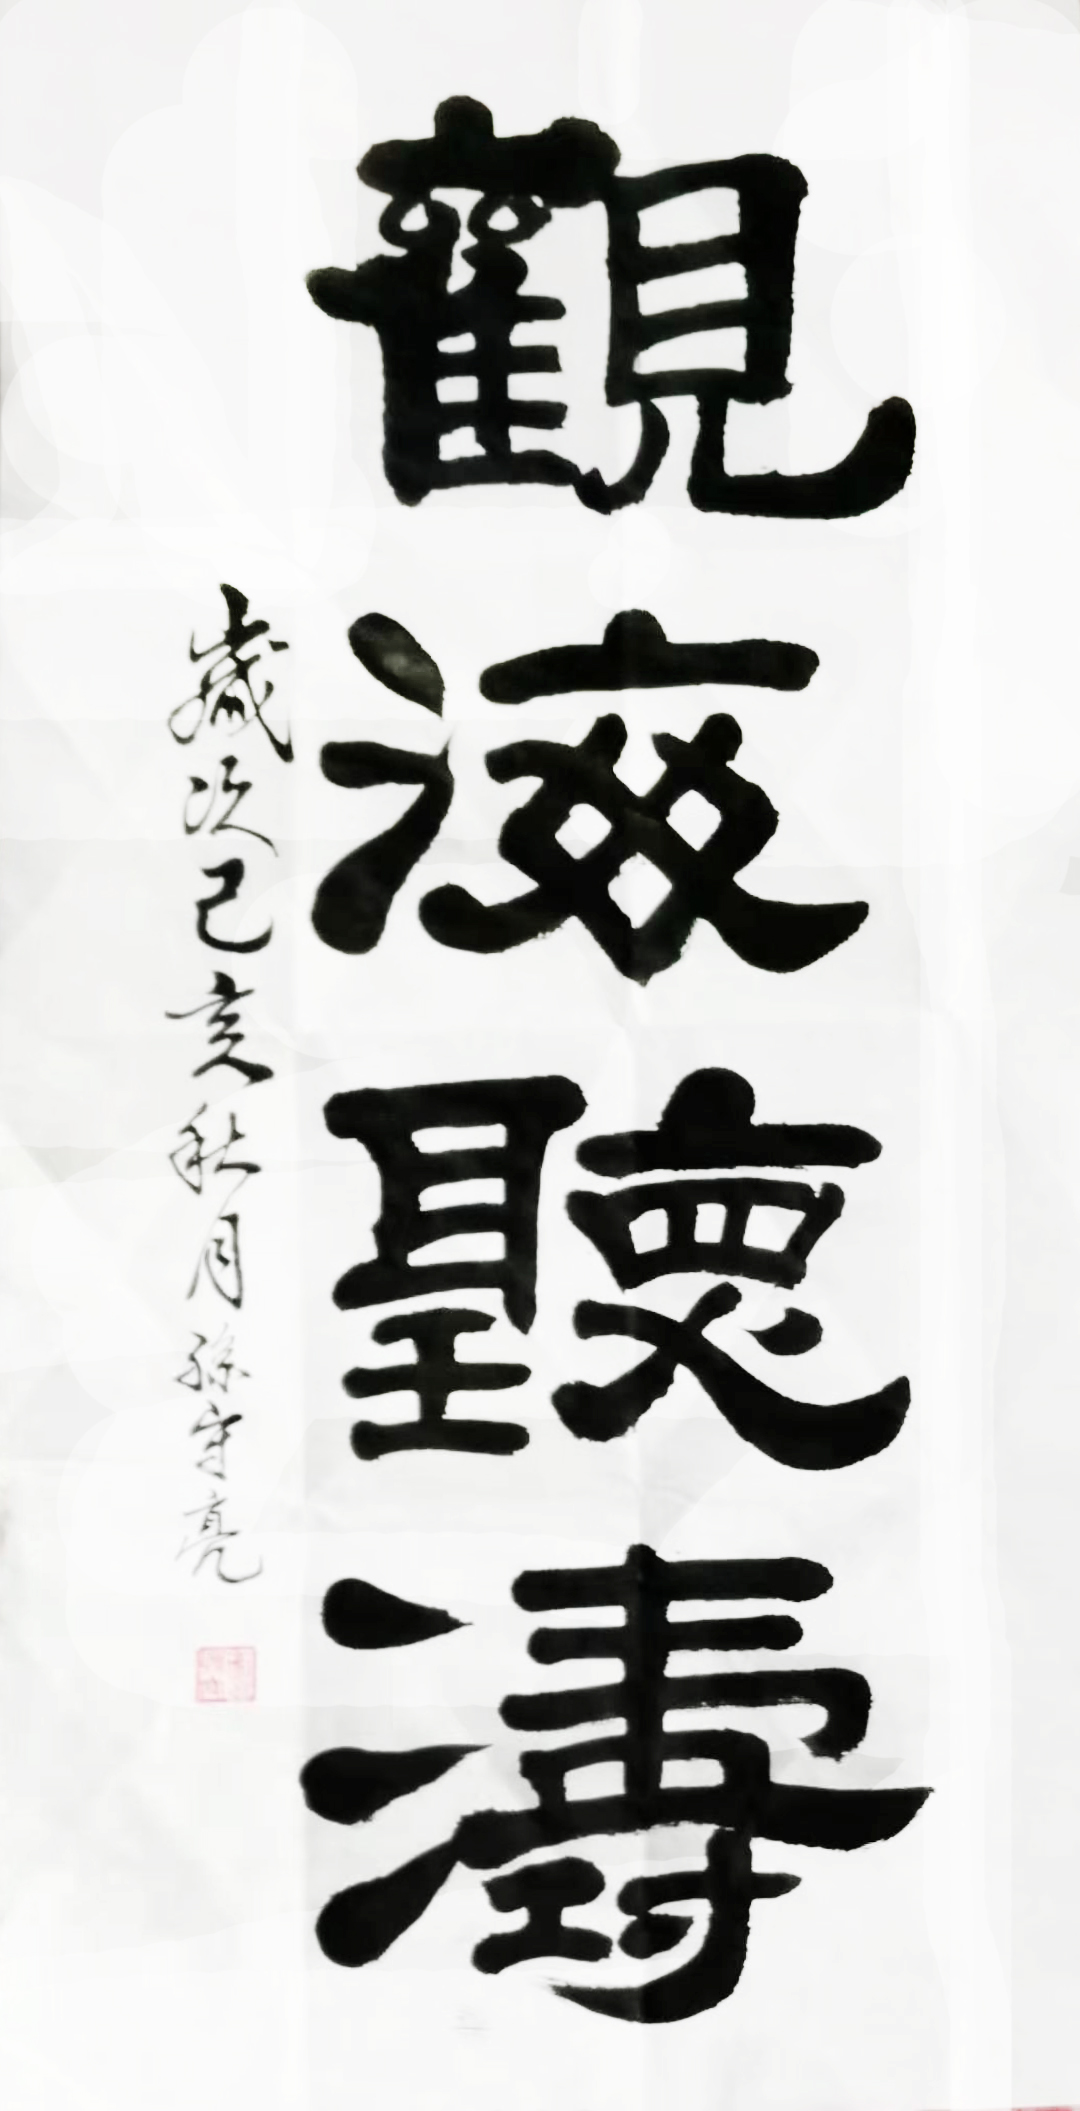 觀海聽濤
歲次己亥秋月孫守亮